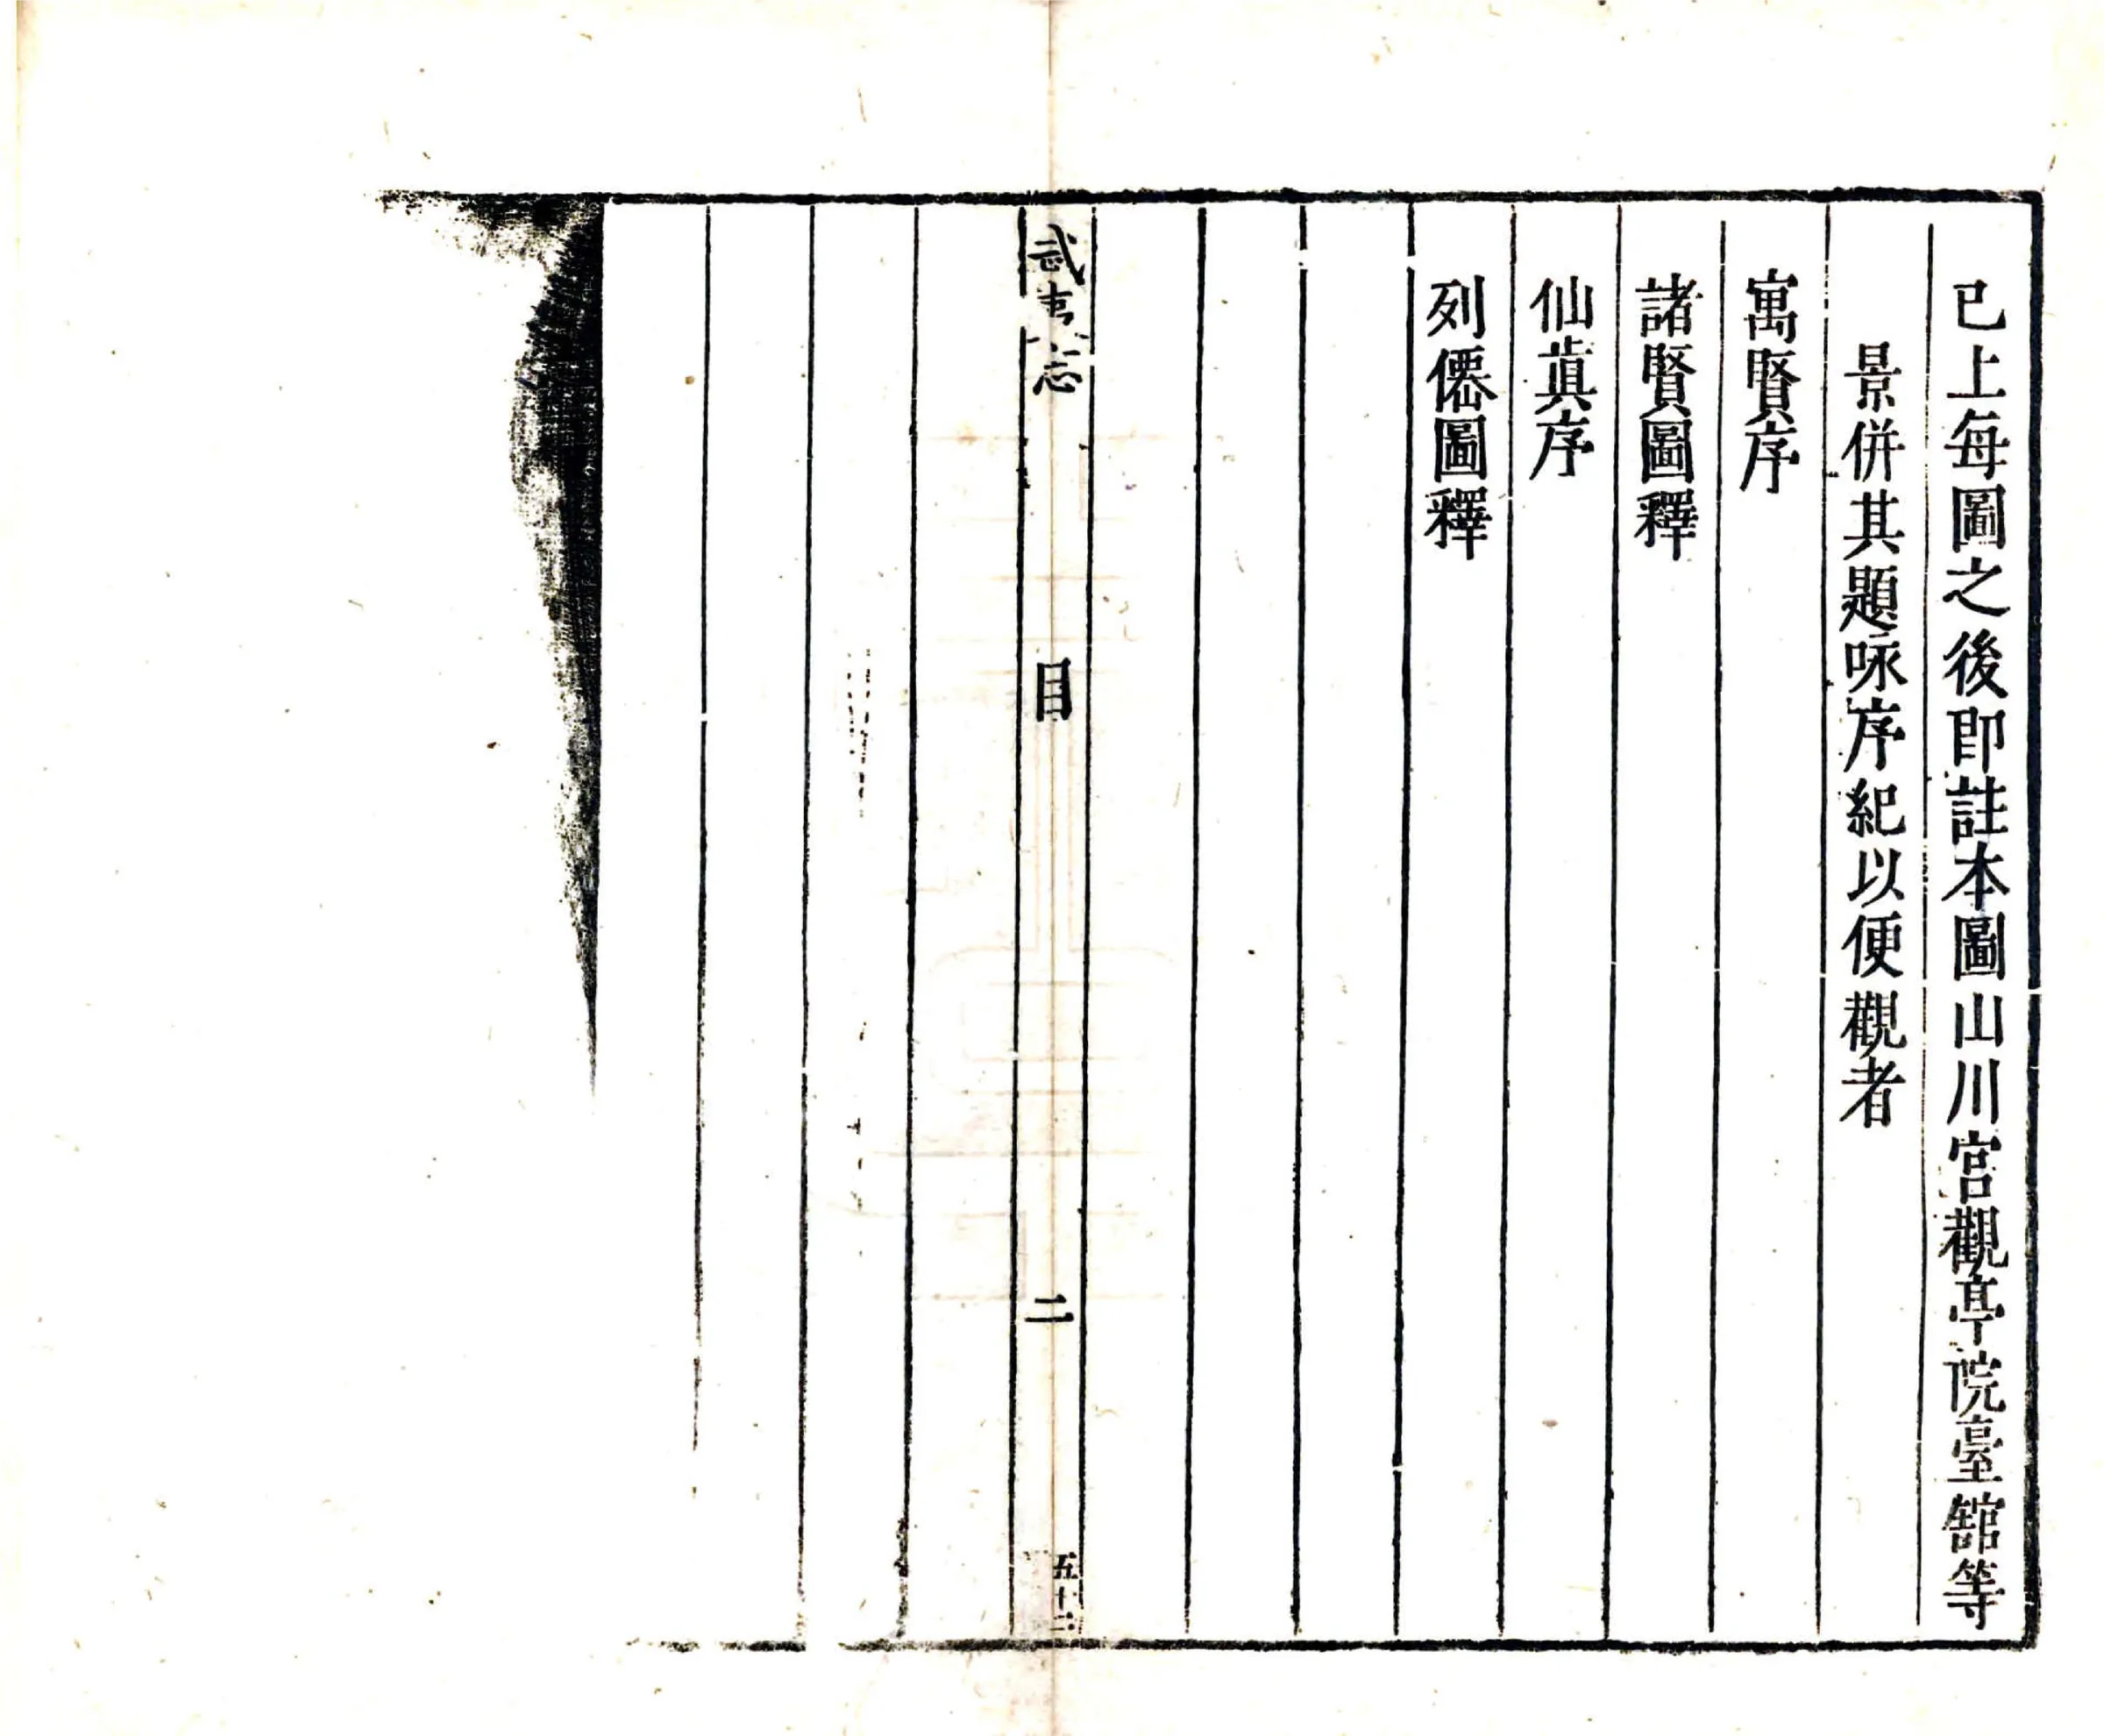 已上每圖之後即註本圖山川宮觀亭院臺舘等
景併其題咏序紀以便觀者
寓賢序
諸賢圖釋
仙眞序
列僊圖釋
武夷志
目
二
五十二